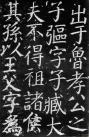 出于魯孝公之
子彄字子臧大
夫不得祖諸侯
其孫以王父字為